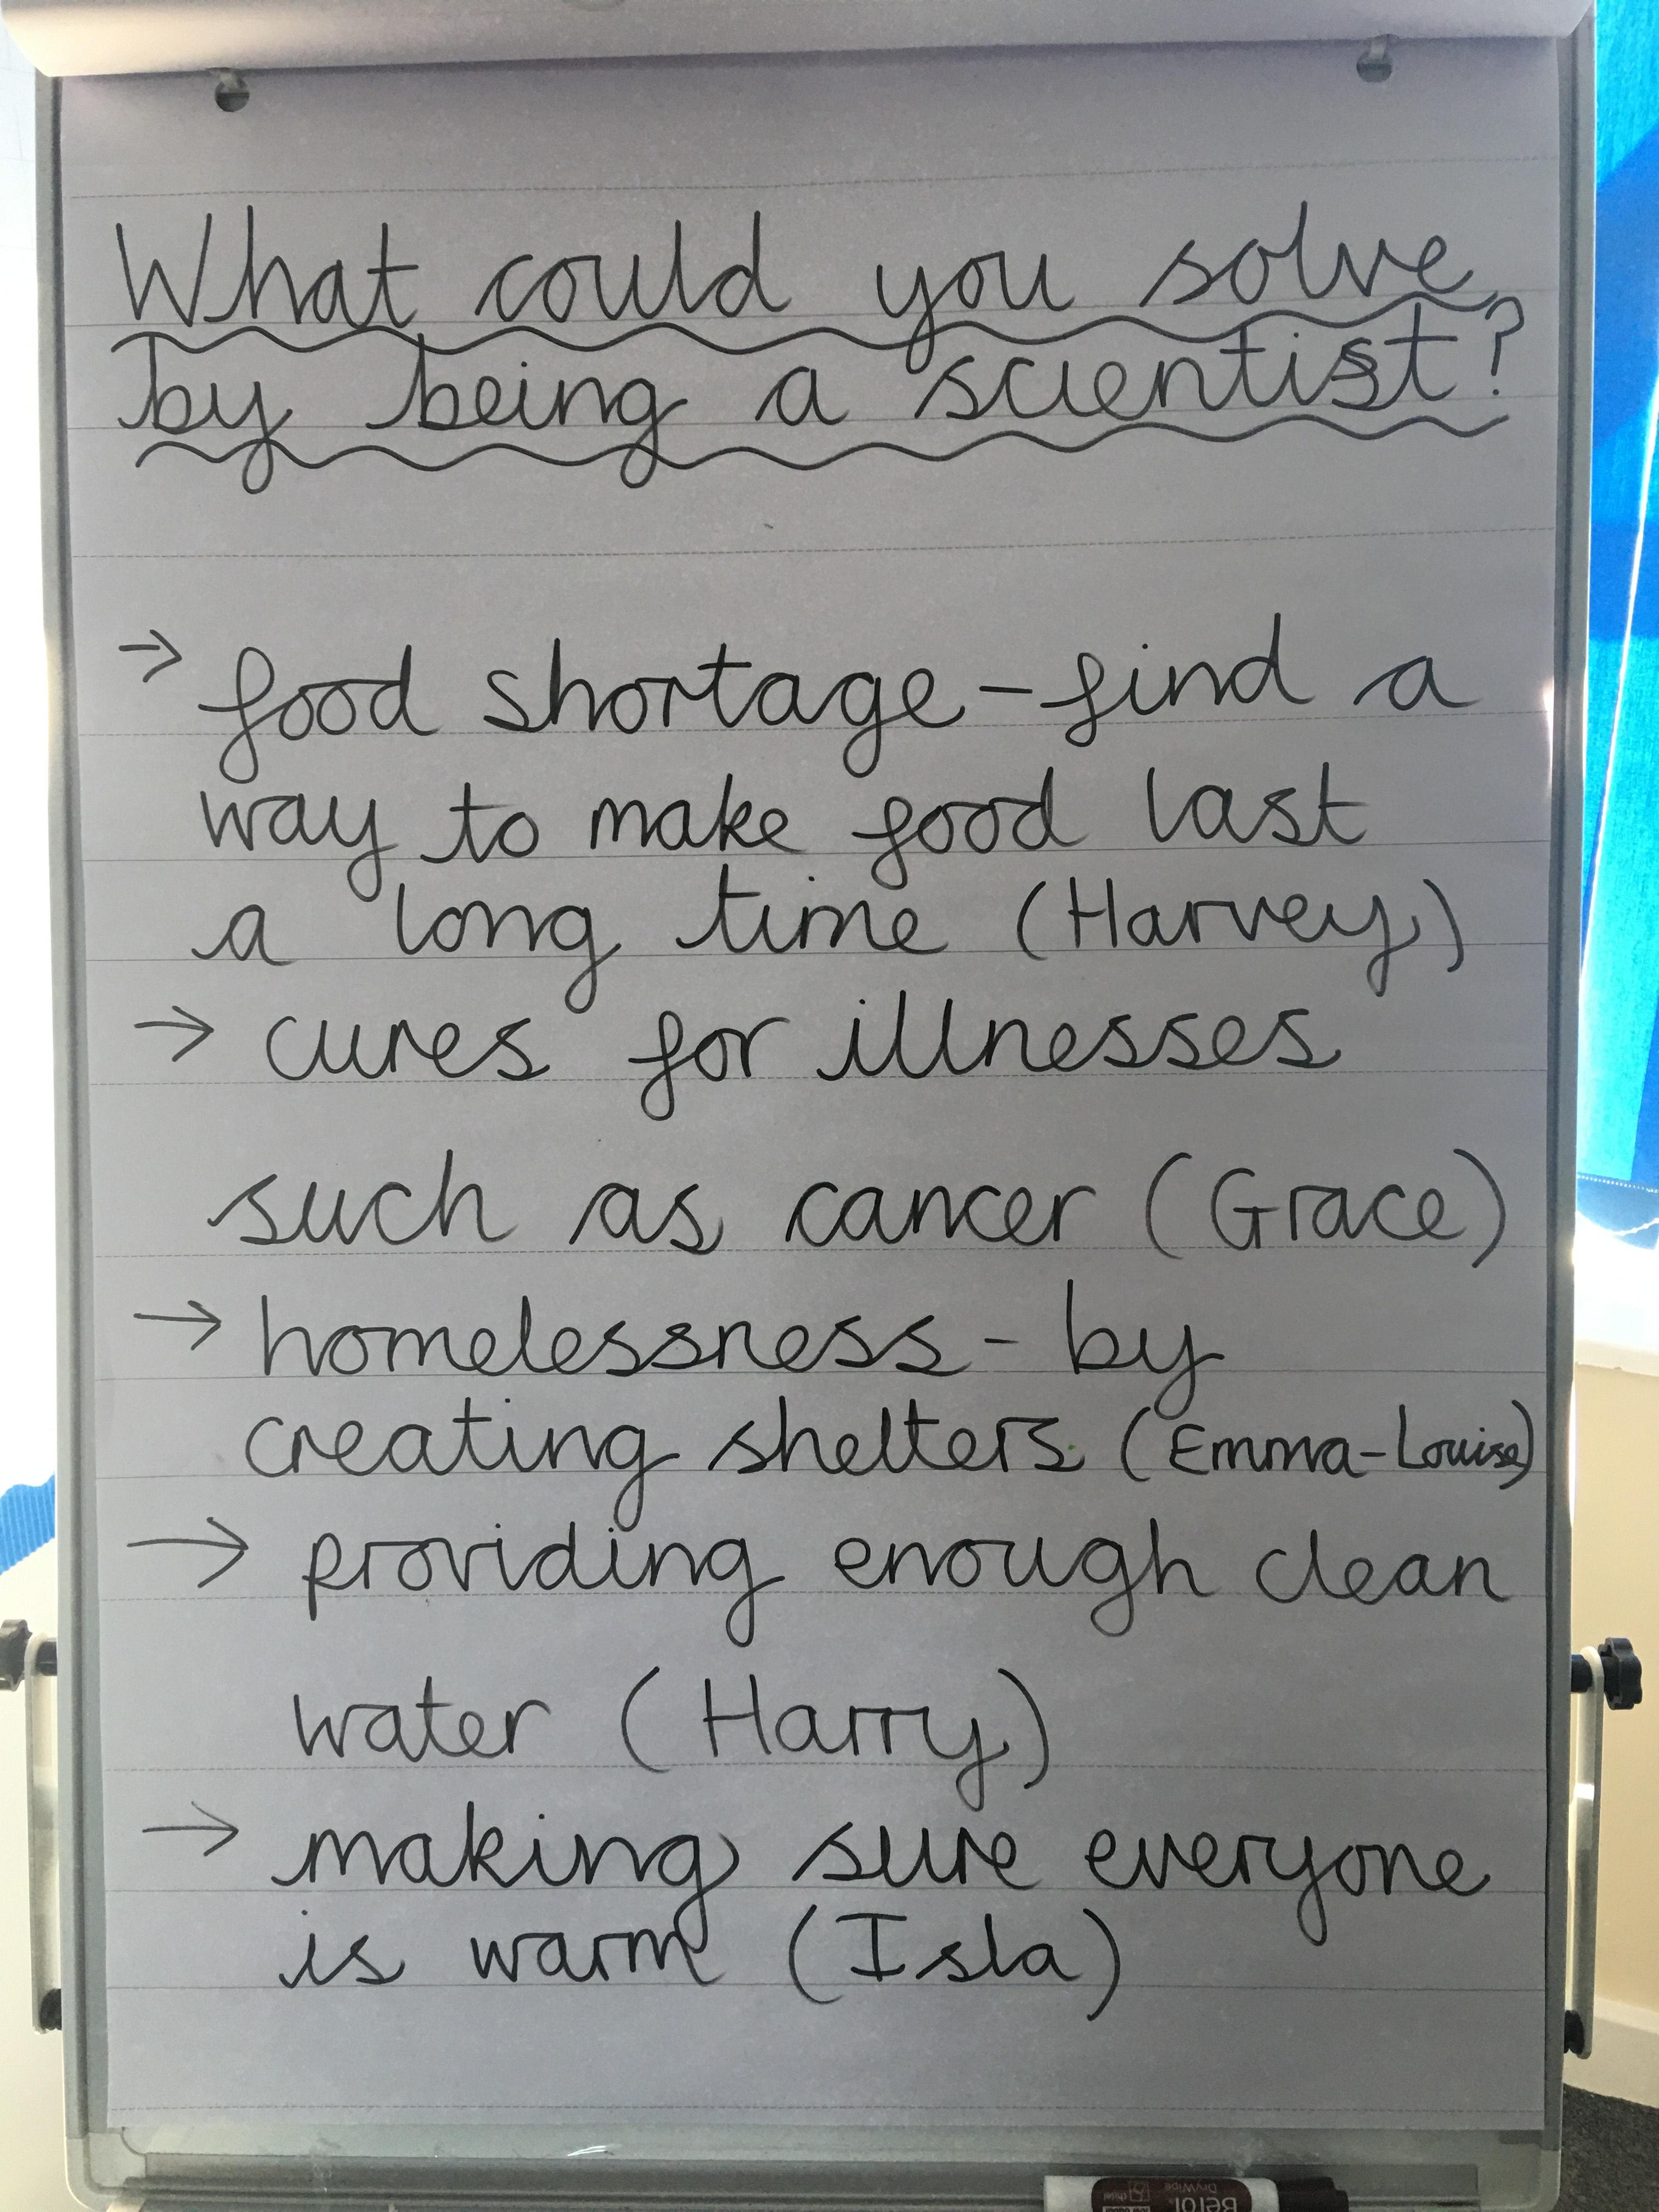 What could you solve
by being a scientist?
→ food shortage - find a
way to make food last
a long time (Harvey)
→ cures for illnesses
such as cancer (Grace)
→ homelessness - by
creating shelters (Emma-Louise)
→ providing enough clean
water (Harry)
→ making sure everyone
is warm (Isla)
Berol
DryWipe